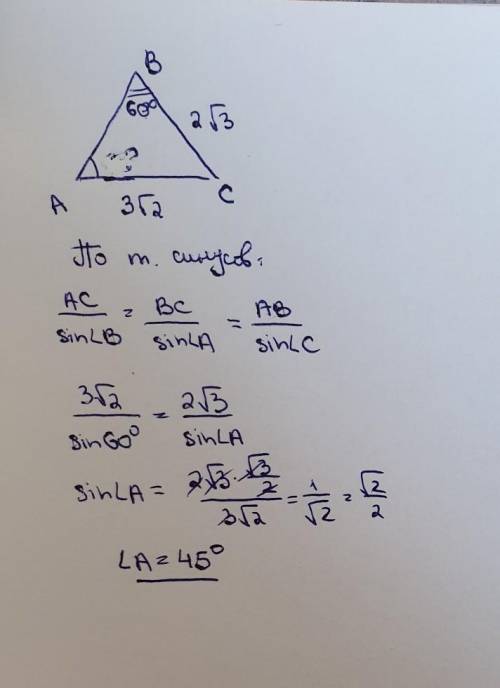 B
60°
2√3
A
C
3√2
По т. синусов:
AC/sin∠B = BC/sin∠A = AB/sin∠C
3√2/sin60° = 2√3/sin∠A
sin∠A = (2√3·√3/2)/3√2 = 1/√2 = √2/2
∠A = 45°